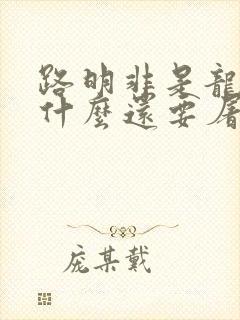 路明非是龍
什麼還要屠
庞某戴